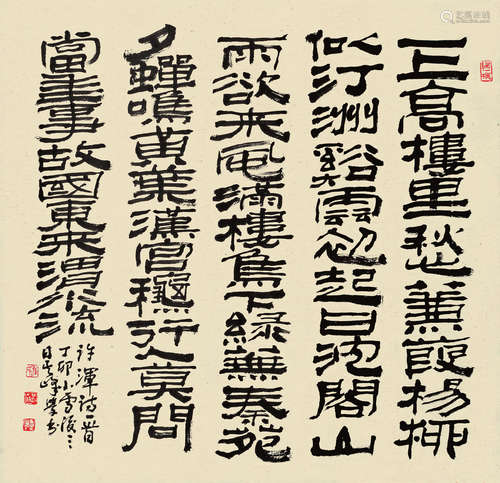 一上高樓里愁蒹葭楊柳
似汀洲谿雲初起日沈閣山
雨欲来風滿樓鳥下緑蕪秦苑
夕蟬鳴黄葉漢宮穐行人莫問
當年事故國東来渭水流
许渾詩一首
丁卯小雪後三
日峰学书